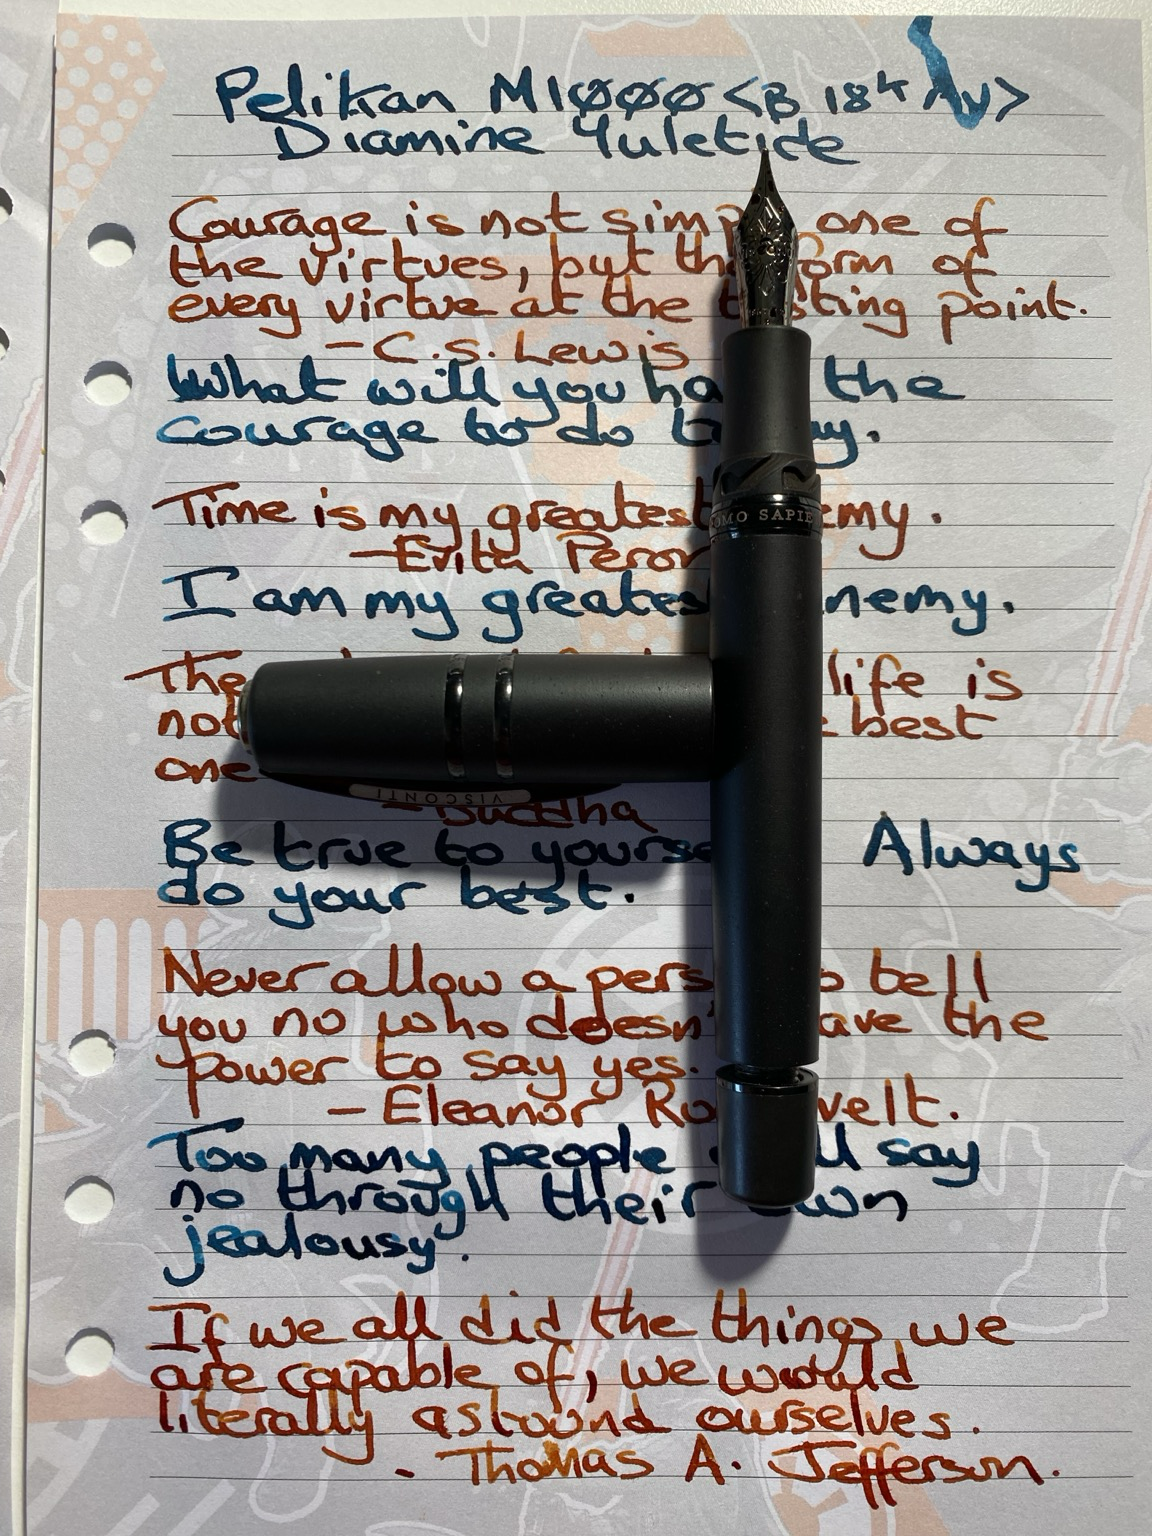 Pelikan M1000 <B 18k Au>
Diamine Yuletide
Courage is not one of
the virtues, but form of
every virtue at the point.
- C.S. Lewis
What will you the
courage to do
Time is my greatest
- Evita
I am my greatest
The life is
not best
one
- Buddha
Be true to Always
do your best.
Never allow a tell
you no who the
power to say yes.
- Eleanor
Too many people say
no through their
jealousy.
If we all did the things we
are capable of, we would
literally astound ourselves.
- Thomas A. Jefferson.
VISCONTI